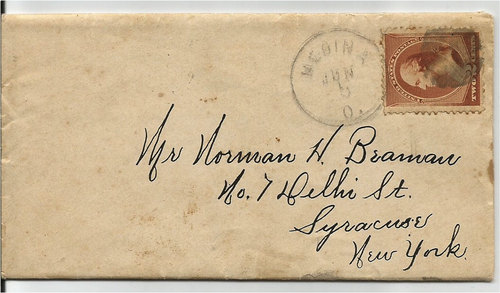 MEDINA
JUN
5
O.
Mr Norman H. Beaman
No. 7 Delhi St.
Syracuse
New York.